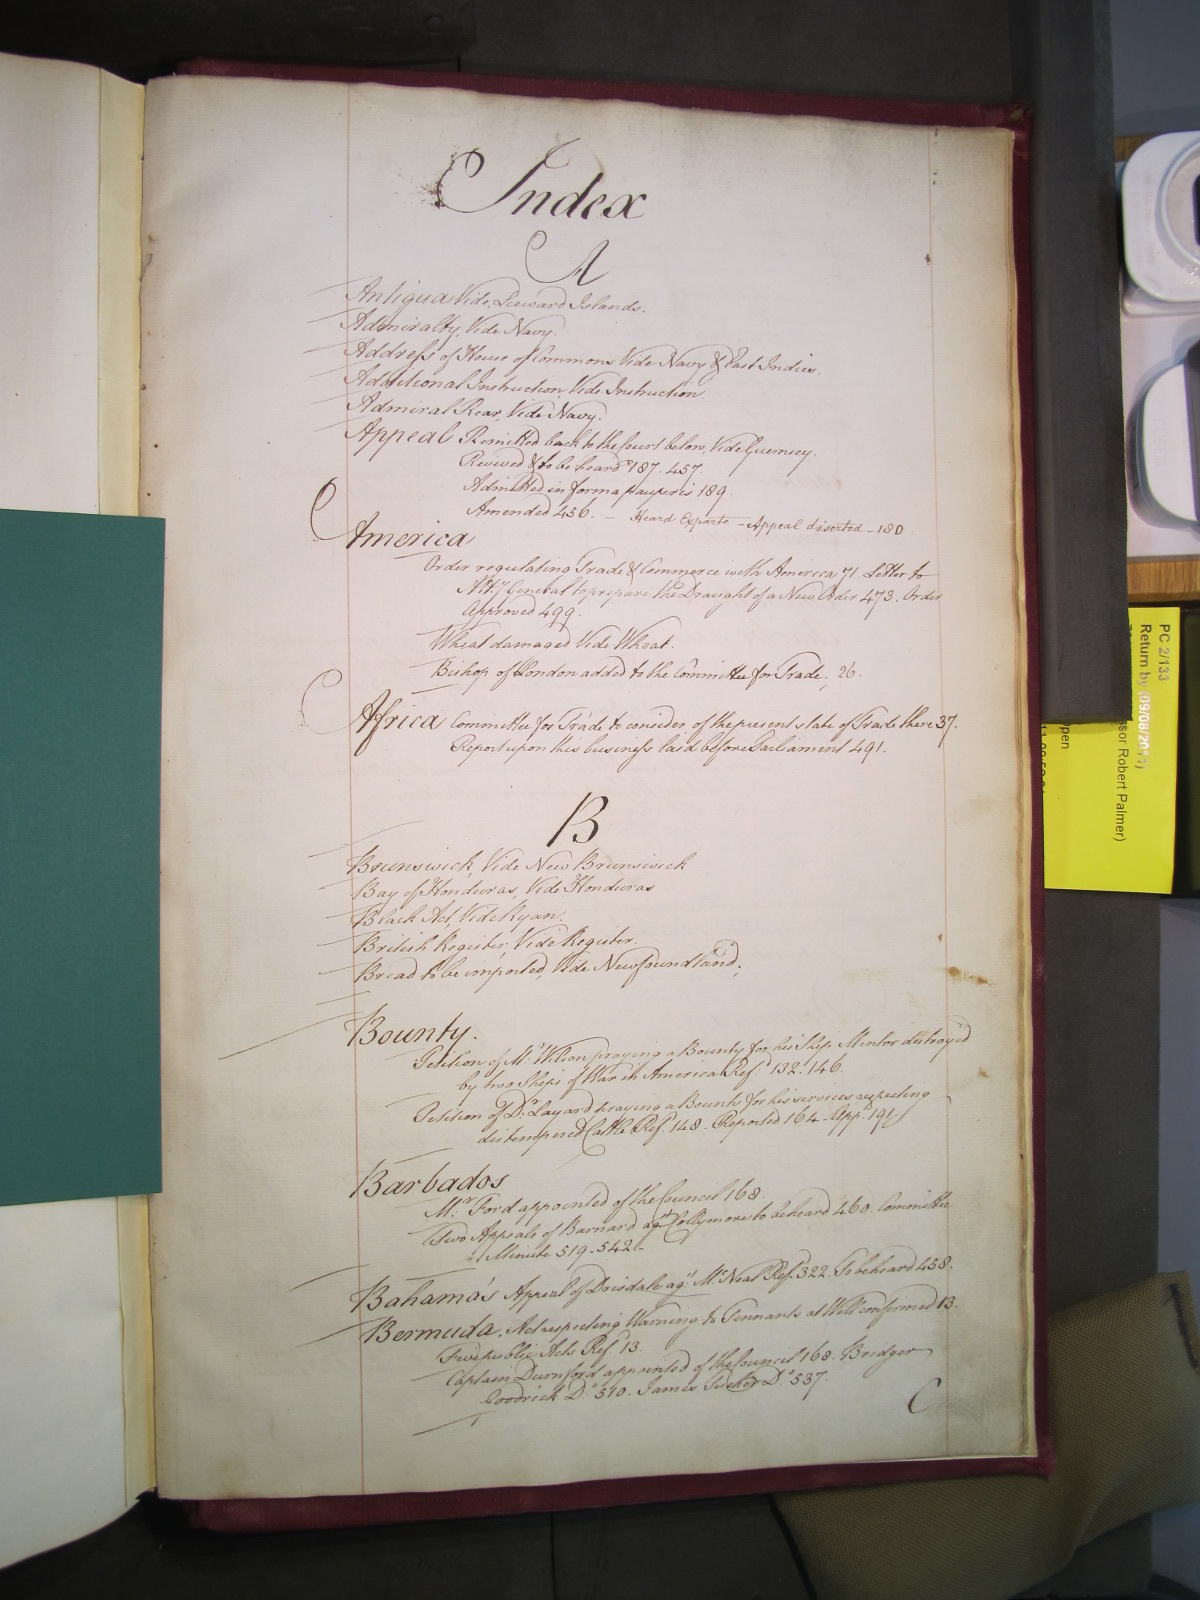 Index
A
Antigua Vide, Leeward Islands.
Admiralty, Vide Navy.
Address of House of Commons Vide Navy & East Indies.
Additional Instruction, Vide Instruction.
Admiral Rear, Vide Navy.
Appeal Remitted back to the Court below, Vide Guernsey.
Revived & to be heard 187. 457.
Admitted in forma pauperis 189.
Amended 456. — Heard Exparte — Appeal diserted — 180
America
Order regulating Trade & Commerce with America 71. Letter to
Att.y General to prepare the Draught of a New Order 473. Order
Approved 499.
Wheat damaged Vide Wheat.
Bishop of London added to the Committee for Trade, 26.
Africa Committee for Trade to consider of the present state of Trade there 37.
Report upon this business laid before Parliament 491.
B
Brunswick, Vide New Brunswick
Bay of Honduras, Vide Honduras
Black Act, Vide Ryan.
British Register, Vide Register.
Bread to be imported, Vide Newfoundland.
Bounty.
Petition of Mr. Wilson praying a Bounty for his Ship Mentor destroyed
by two Ships of War in America Ref.d 132. 146.
Petition of Dr. Layard praying a Bounty for his services respecting
distempered Cattle Ref.d 148 - Reported 164 - App.d 191
Barbados
Mr. Ford appointed of the Council 168.
Two Appeals of Barnard ag.t Collymore to be heard 460. Committee
Minute 519 - 542 -
Bahama's Appeal of Drisdale ag.t McNeal Ref.d 322. To be heard 458.
Bermuda. Act respecting Warning to Tennants at Will confirmed 13.
Five public Acts Ref.d 13.
Captain Durnford appointed of the Council 168. Bridger
Goodrick Do. 510. James Tucker Do. 537.
C
PC 2/133
Return by (09/08/2011)
ssor Robert Palmer)
pen